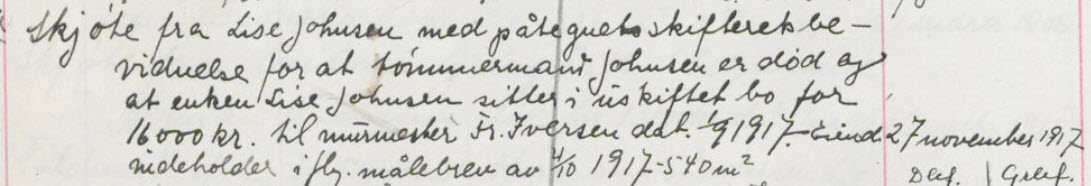 Skjøte fra Lise Johnsen med påtegnet skifterets be-
vidnelse for at tømmermand Johnsen er død og
at enken Lise Johnsen sitter i uskiftet bo for
16000 kr. til murmester Fr. Iversen dat. 1/9 1917. Eiend 27 november 1917
indeholder iflg. målebrev av 4/10 1917 - 540 m²